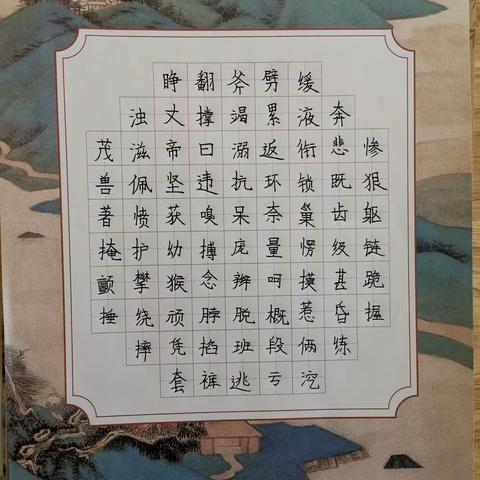 睁翻斧劈缓
浊丈撑竭累液奔
茂滋帝曰溺返衔悲惨
兽佩坚违抗环锁既狠
著愤获嗅呆奈巢齿躯
掩护幼搏庞量愣级链
颤攀猴念辨呵摸甚跪
捶绕顽脖脱概惹昏握
摔凭掐班段俩练
套裤逃亏挖